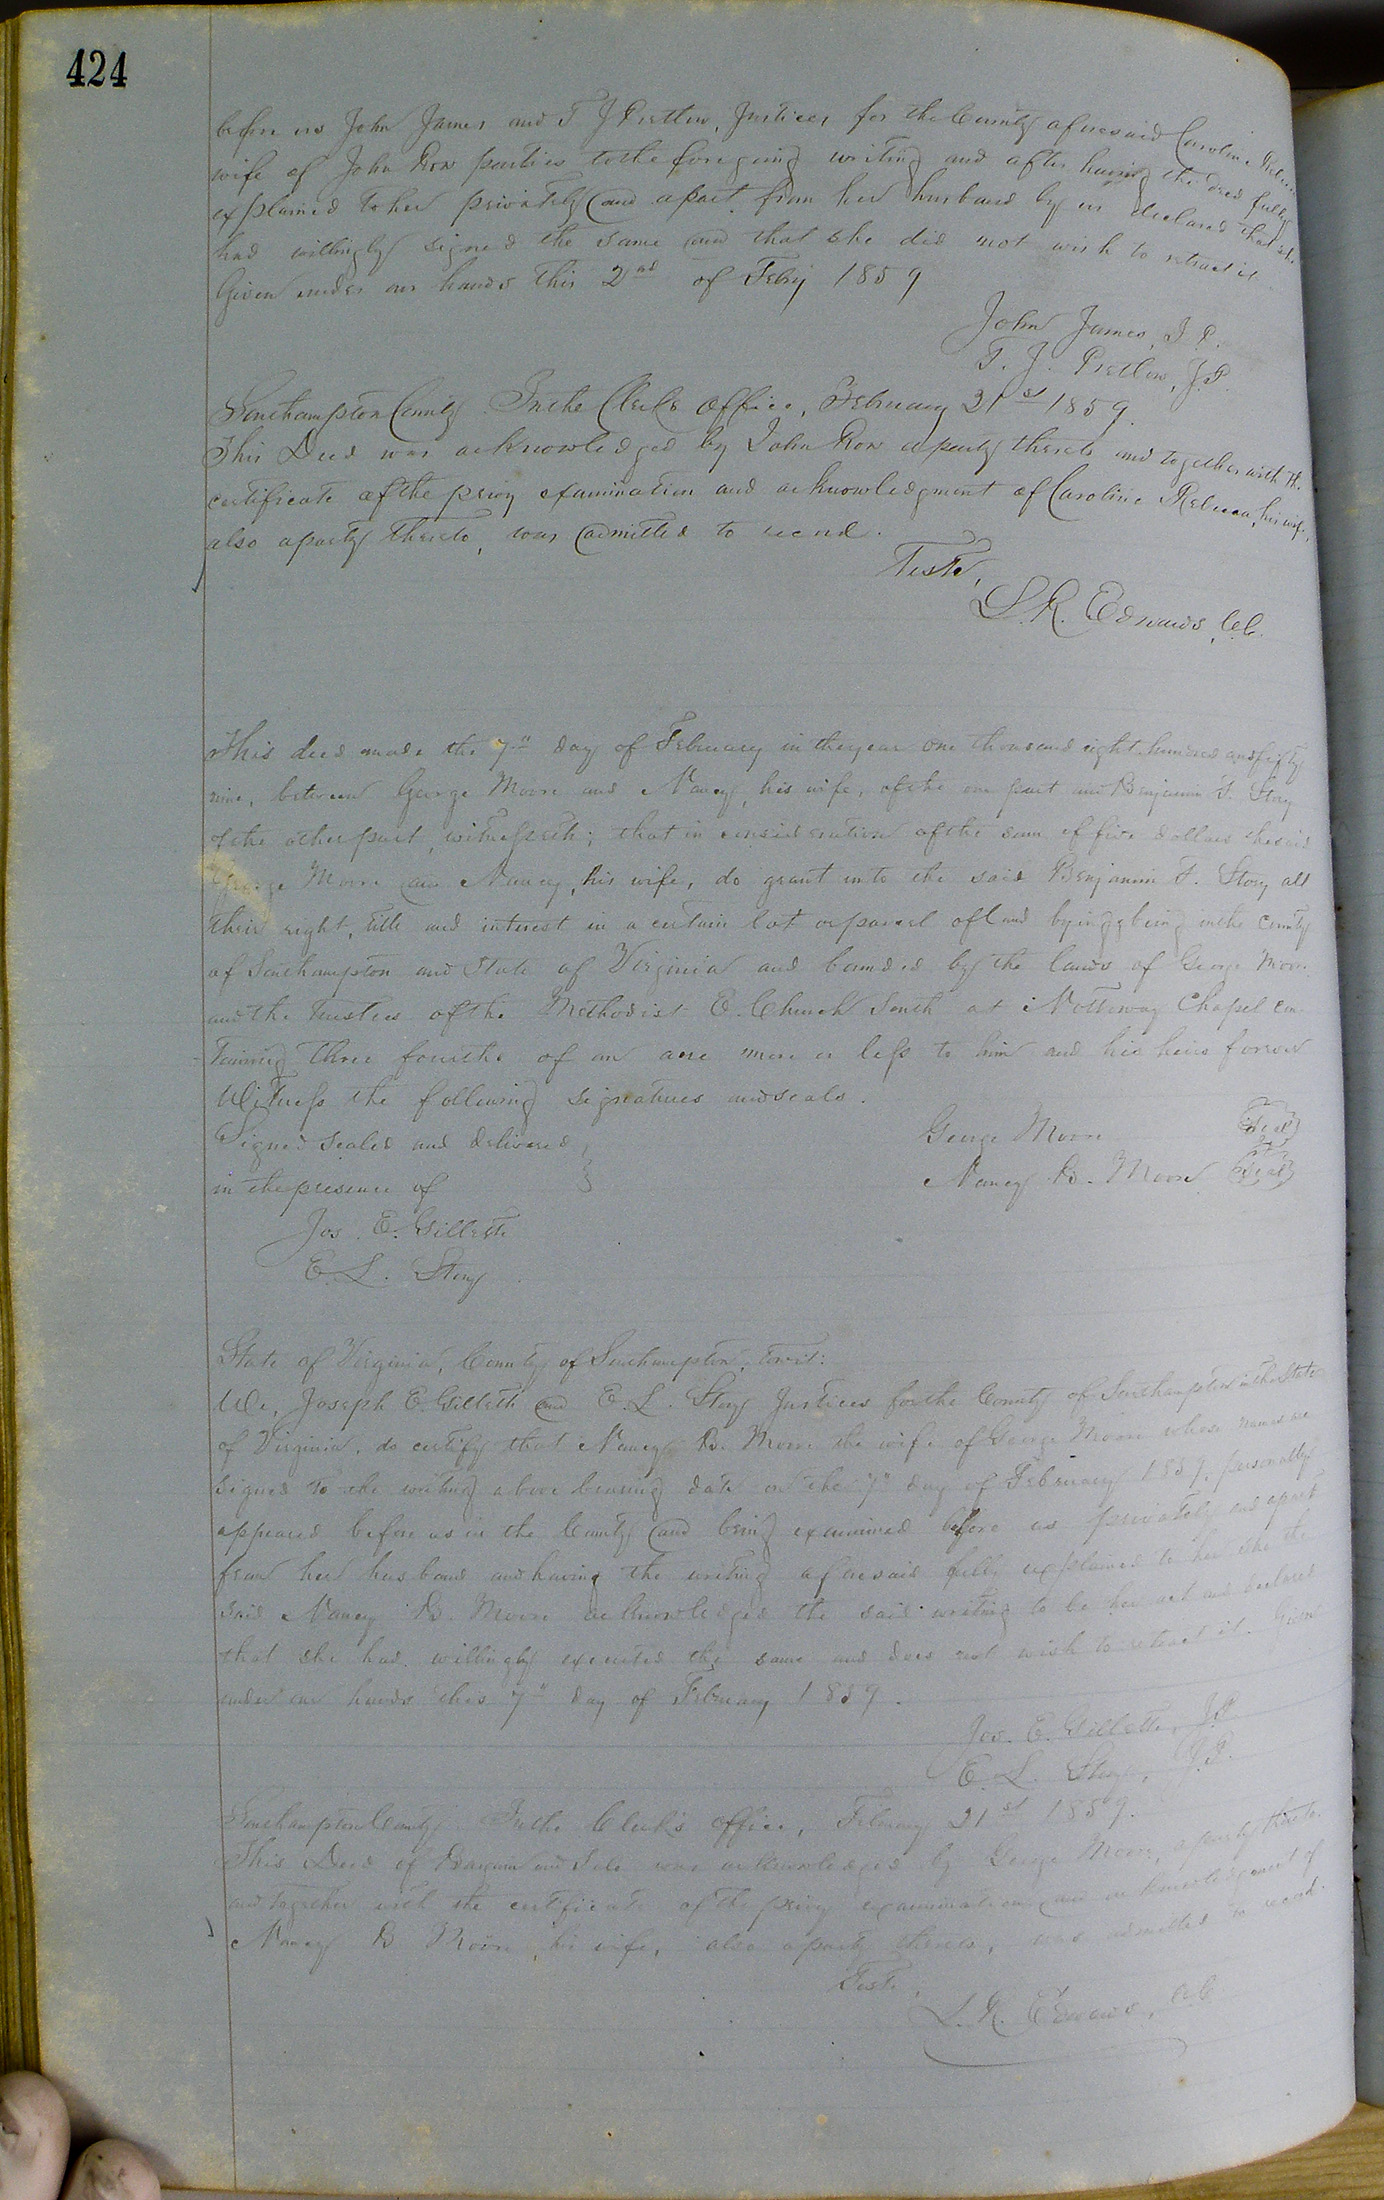 424
before us John James and T J Pretlow, Justices for the County aforesaid Caroline
wife of John Row parties to the foregoing writing and after having the deed fully
explained to her privately and apart from her husband by us declared that she
had willingly signed the same and that she did not wish to retract it
Given under our hands this 2nd of Feby 1859
John James, J.P.
T. J. Pretlow, J.P.
Southampton County In the Clerks office, February 21st 1859.
This Deed was acknowledged by John Row a party thereto and together with the
certificate of the privy examination and acknowledgment of Caroline Rebecca, his wife,
also a party thereto, was admitted to record.
Teste,
L. R. Edwards, C.C.
This deed made the 7th day of February in the year one thousand eight hundred and fifty
nine, between George Moore and Nancy, his wife, of the one part and Benjamin F. Story
of the other part, witnesseth; that in consideration of the sum of five dollars the said
George Moore and Nancy, his wife, do grant unto the said Benjamin F. Story all
their right, title and interest in a certain lot or parcel of land lying & being in the County
of Southampton and State of Virginia and bounded by the lands of George Moore
and the Trustees of the Methodist E. Church South at Nottoway Chapel con-
taining three fourths of an acre more or less to him and his heirs forever
Witness the following signatures and seals.
Signed sealed and delivered }
in the presence of }
George Moore {Seal}
Nancy B. Moore {Seal}
Jos. E. Gillette
E. L. Story
State of Virginia, County of Southampton, towit:
We, Joseph E. Gillette and E. L. Story Justices for the County of Southampton in the State
of Virginia, do certify that Nancy B. Moore the wife of George Moore whose names are
signed to the writing above bearing date on the 7th day of February 1859, personally
appeared before us in the County and being examined before us privately and apart
from her husband and having the writing aforesaid fully explained to her she the
said Nancy B. Moore acknowledged the said writing to be her act and declared
that she had willingly executed the same and does not wish to retract it. Given
under our hands this 7th day of February 1859.
Jos. E. Gillette, J.P.
E. L. Story, J.P.
Southampton County In the Clerk's office, February 21st 1859.
This Deed of Bargain and Sale was acknowledged by George Moore, a party thereto.
and together with the certificate of the privy examination and acknowledgement of
Nancy B Moore, his wife, also a party thereto, was admitted to record.
Teste,
L. R. Edwards, C.C.